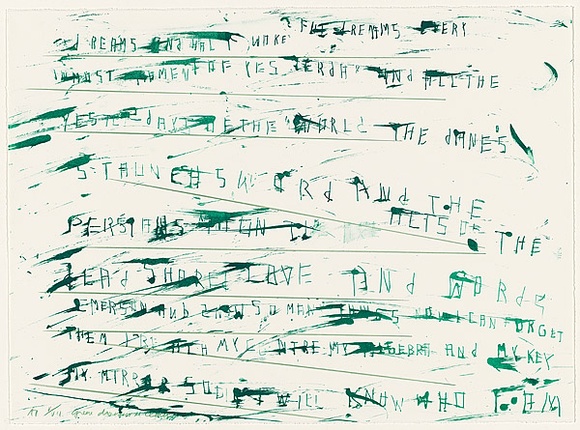 FUL dREAMS EVERY
dREAMS ANd HALF WAKE
INMOST MOMENT OF YESTERdAY ANd ALL THE
YESTERdAYS OF THE WORLd THE dANE'S
STAUNCH SWORd ANd THE
PERSIANS ACTS OF THE
dEAd SHAREd LOVE ANd WORdS
EMERSON ANd SNOW SO MANY THINGS NOW I CAN FORGET
THEM I REACH MY CENTRE MY ALGEBRA ANd MY KEY
MY MIRROR SOON I WILL KNOW WHO I AM